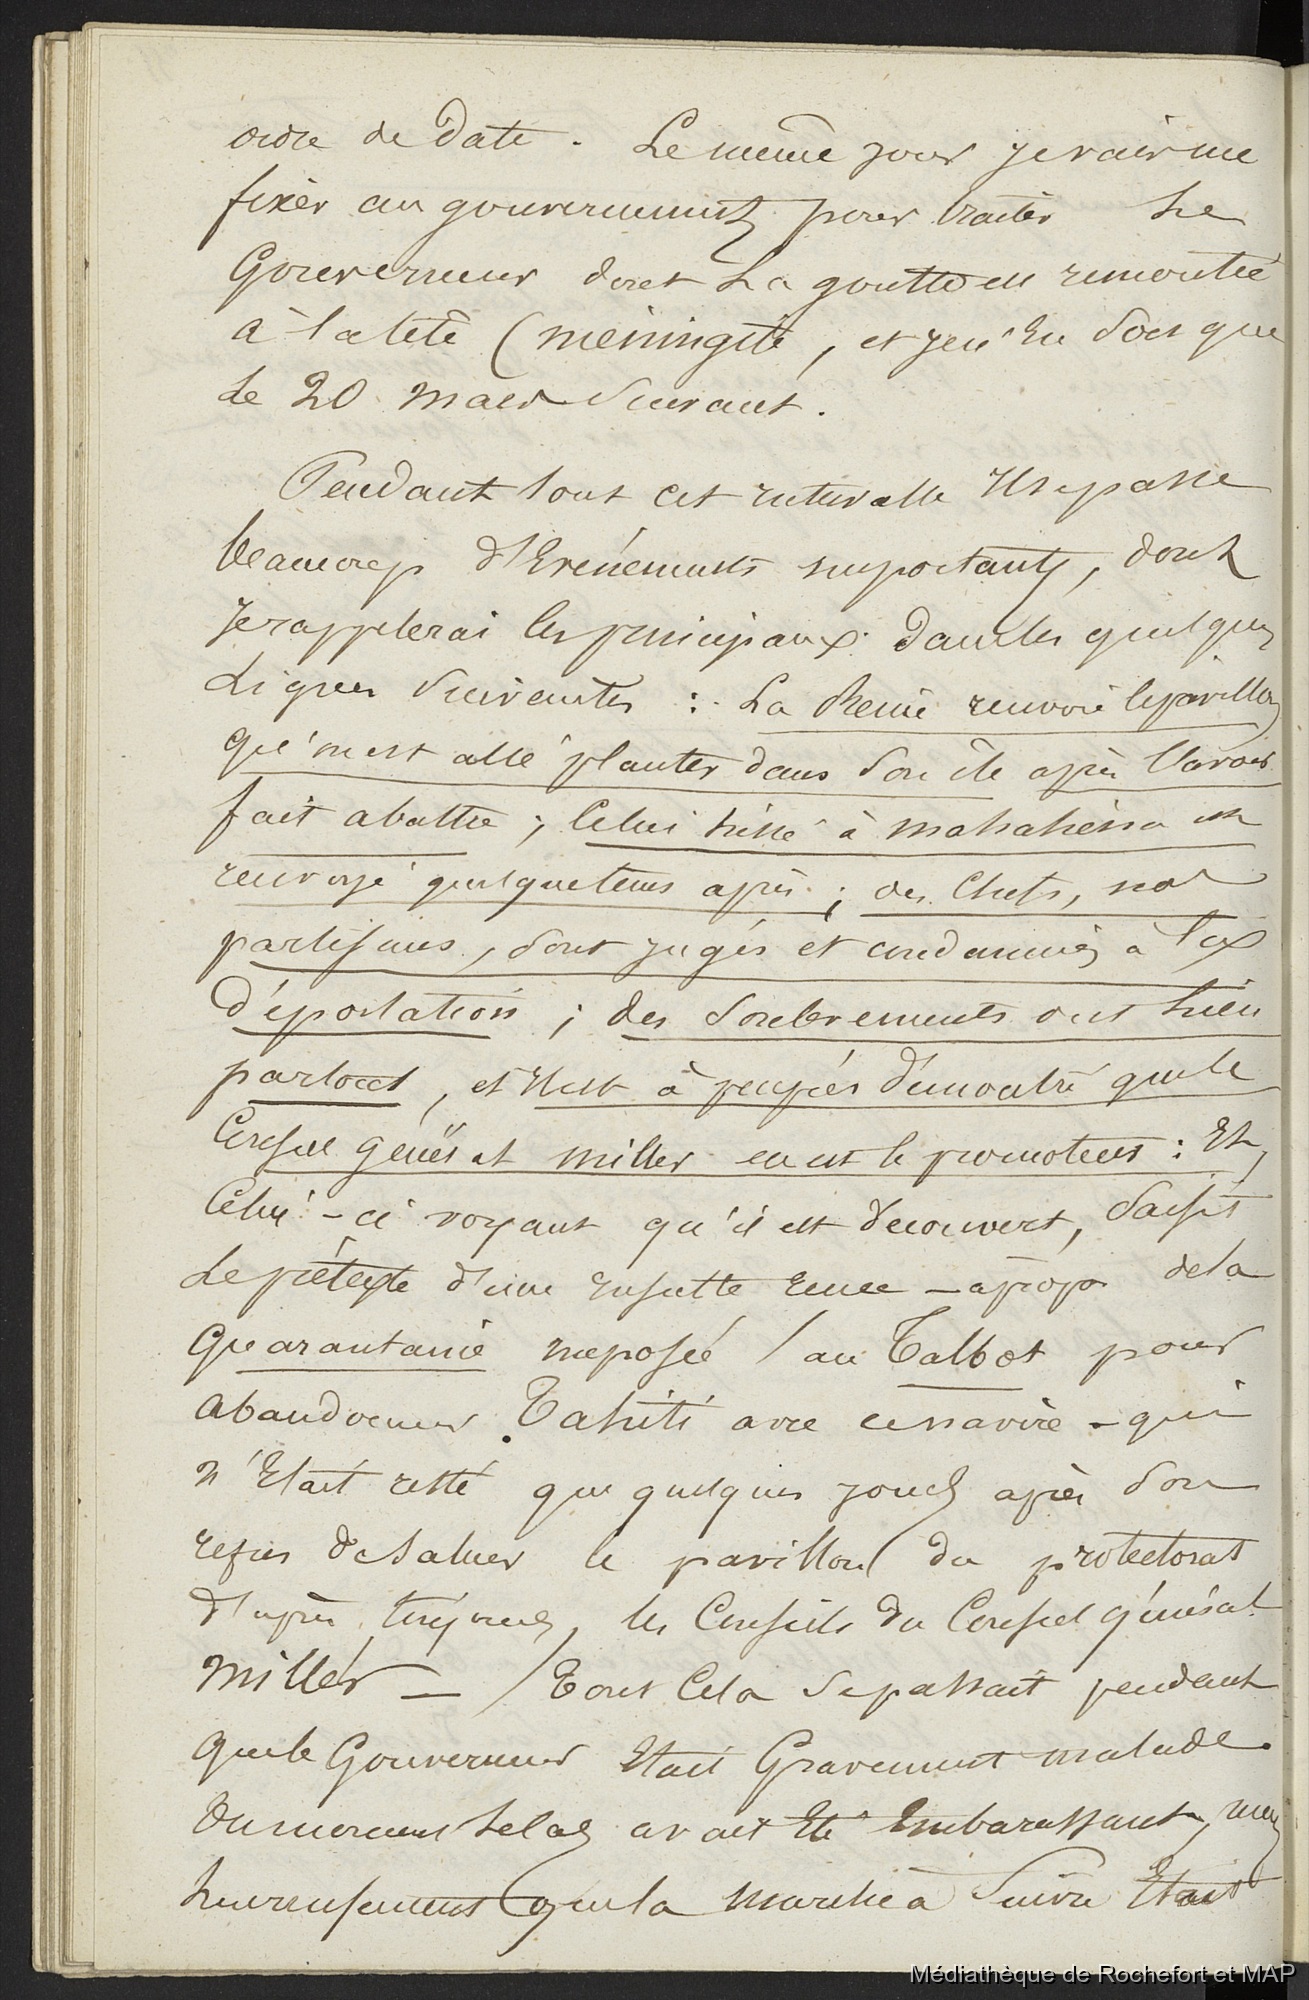 ordre de date. Le même jour je vais me
fixer au gouvernement pour traiter le
Gouverneur dont la goutte est remontée
à la tête (méningite, et je n'en sors que
le 20 mars suivant.
Pendant tout cet intervalle il se passe
beaucoup d'Evénements importants, dont
je rappelerai les principaux dans les quelques
lignes suivantes : La Reine renvoie le pavillon
qu'on est allé planter dans son île après l'avoir
fait abattre ; Celui hissé à Mahahéna est
renvoyé quelque tems après ; des Chefs, nos
partisans, sont jugés et condamnés à la
déportation ; des soulèvements ont lieu
partout, et il est à peu près démontré que le
Consul général Miller en est le promoteur : Et,
Celui-ci voyant qu'il est découvert, saisit
le prétexte d'une insulte reçue - à propos de la
quarantaine imposée / au Talbot pour
abandonner Tahiti avec ce navire - qui
n'Etait resté que quelques jours après son
refus de saluer le pavillon du protectorat
d'après, toujours, les Conseils du Consul général
Miller — / Tout Cela se passait pendant
que le Gouverneur Etait Gravement malade.
Un moment le cas avait Eté Embarassant,
heureusement que la marche à Suivre Etait
Médiathèque de Rochefort et MAP